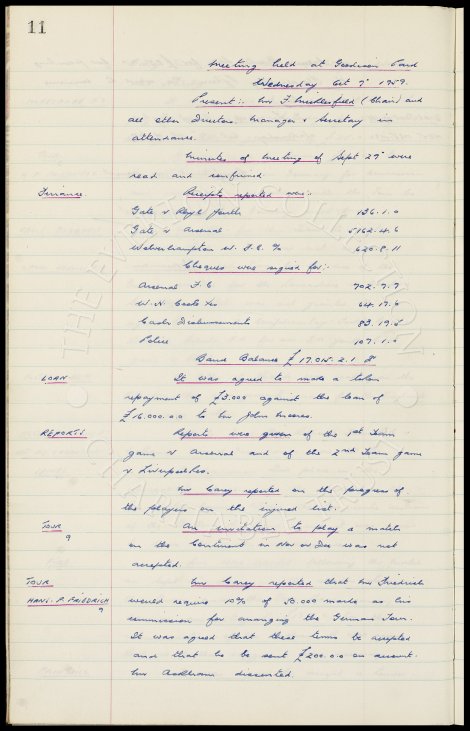 11
Meeting held at Goodison Park
Wednesday Oct 7" 1959.
Present:- Mr F. Micklesfield (Chair) and
all other Directors. Manager & Secretary in
attendance.
Minutes of Meeting of Sept 29" were
read and confirmed
Finance Receipts reported were:-
Gate v Youth 136.1.0
Gate v Arsenal 5162.4.6
Wolverhampton W. F.C. % 620.8.11
Cheques were signed for:-
Arsenal F.C 702.7.7
64.17.6
Cash Disbursements 83.19.
Police 107.1.0
Bank Balance £17,015.2.1
LOAN It was agreed to make a token
repayment of £3,000 against the loan of
£16,000.0.0 to Mr John Moores.
REPORTS Reports were given of the 1st Team
game v Arsenal and of the 2nd Team game
v Liverpool Res.
Mr Carey reported on the progress of
the players on the injured list.
Tour An invitation to play a match
on the Continent in Nov or Dec was not
accepted.
TOUR Mr Carey reported that Mr Friedrich
HANS. P. FRIEDRICH would require 10% of 50.000 marks as his
commission for arranging the German Tour.
It was agreed that these terms be accepted
and that he be sent £200.0.0 on account.
Mr dissented.
THE EVERTON COLLECTION
CHARITABLE TRUST